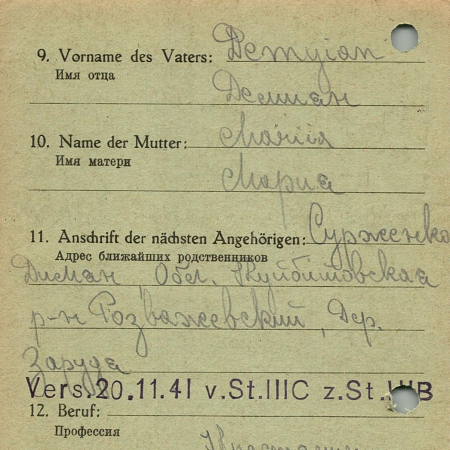 9. Vorname des Vaters: Demyian
Имя отца
Демиан
10. Name der Mutter: Mariia
Имя матери
Мария
11. Anschrift der nächsten Angehörigen: Сурженко
Адрес ближайших родственников
Обл. Куйбишовская
р-н Розважевский, Дер.
Заруда
Vers. 20.11.41 v.St.IIIC z.St.IIIB
12. Beruf:
Профессия